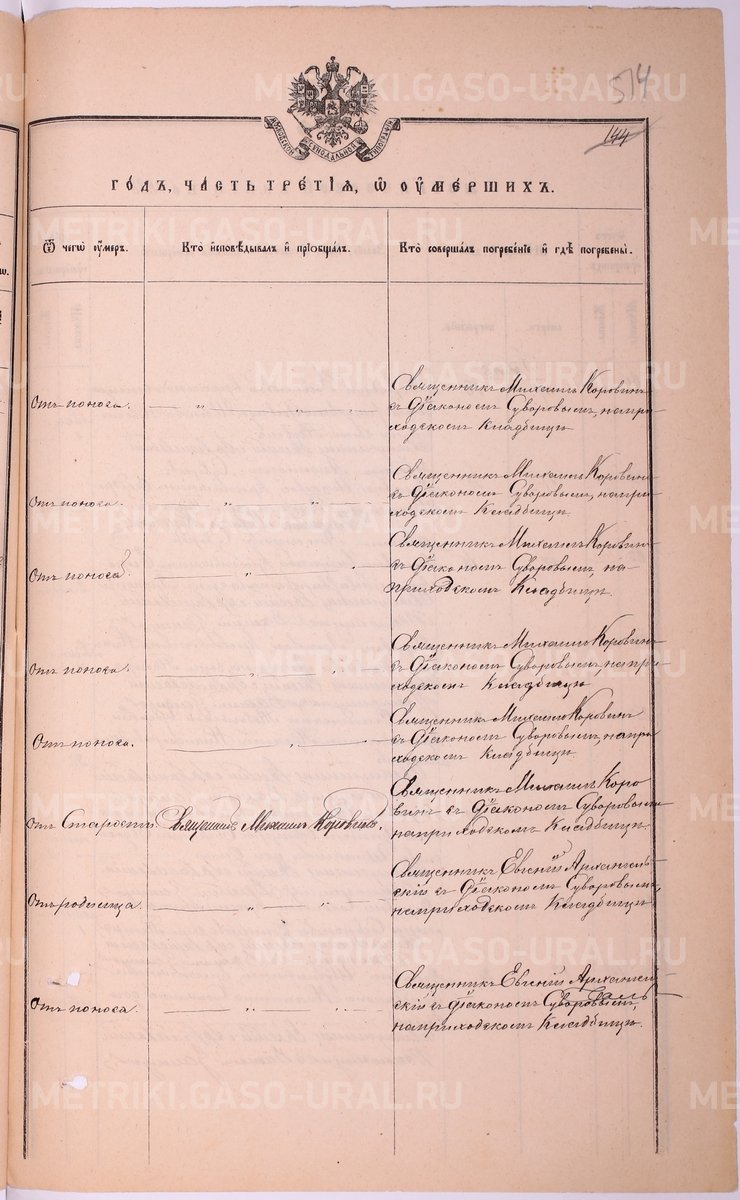 514
144
МОСКОВСКОЙ СѴНОДАЛЬНОЙ ТИПОГРАФІИ
ГОДЪ, ЧАСТЬ ТРЕТІЯ, Ѿ ОУМЕРШИХЪ.
Ѿ чегѡ оумеръ.
Кто исповѣдывалъ и пріобщалъ.
Кто совершалъ погребеніе и гдѣ погребены.
Отъ поноса.
Священникъ Михаилъ Коровинъ
съ Діакономъ Суворовымъ, на при
ходскомъ Кладбищѣ
Отъ поноса.
Священникъ Михаилъ Коровинъ
съ Діакономъ Суворовымъ, на при
ходскомъ Кладбищѣ
Отъ поноса.
Священникъ Михаилъ Коровинъ
съ Діакономъ Суворовымъ, на
приходскомъ Кладбищѣ.
Отъ поноса.
Священникъ Михаилъ Коровинъ
съ Діакономъ Суворовымъ, на при
ходскомъ Кладбищѣ
Отъ поноса.
Священникъ Михаилъ Коровинъ
съ Діакономъ Суворовымъ, на при
ходскомъ Кладбищѣ
Отъ Старости
Священникъ Михаилъ Коровинъ.
Священникъ Михаилъ Коро
винъ съ Діакономъ Суворовымъ
на приходскомъ Кладбищѣ.
Отъ родимца.
Священникъ Евгеній Архангель
скій съ Діакономъ Суворовымъ,
на приходскомъ Кладбищѣ
Отъ поноса.
Священникъ Евгеній Архангель
скій съ Діакономъ Суворовымъ,
на приходскомъ Кладбищѣ.
METRIKI.GASO-URAL.RU